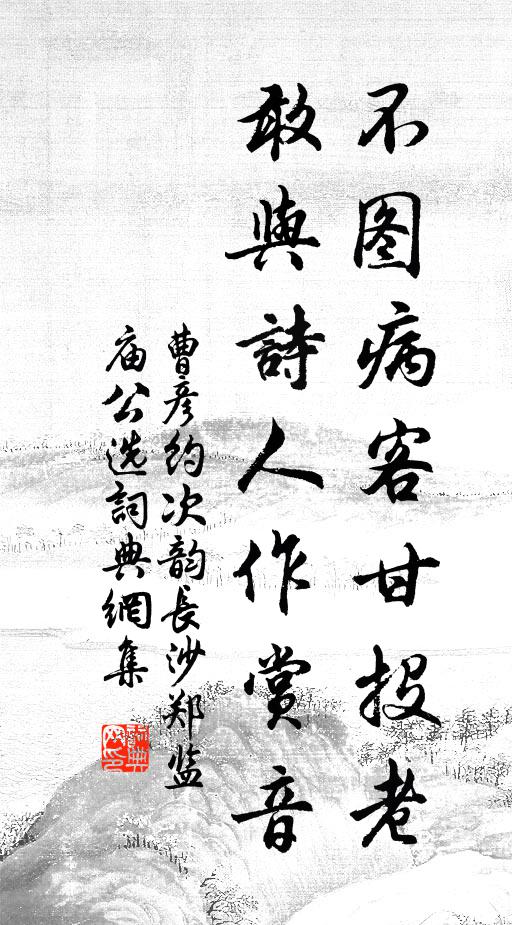 不图病客甘投老
敢與詩人作賞音
曹彦约次韵長沙郑监
庙公选詞典網集